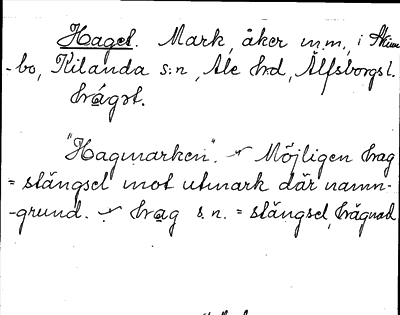 Haget. Mark, åker m.m., i Skim-
-bo, Kilanda s:n, Ale hrd, Älfsborgs l.
hrágət.
"Hagmarken". Möjligen hag
= stängsel mot utmark där namn-
-grund. hrag s.n. = stängsel, hägnad